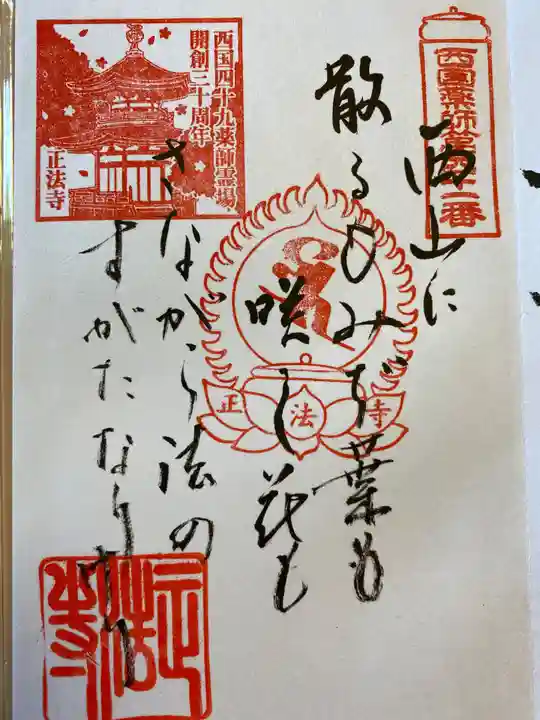 西国薬師第四十二番
西山に
散るもみぢ葉も
咲し花も
さながら法の
すがたなりけり
西国四十九薬師霊場
開創三十周年
正法寺
正法寺
正法寺